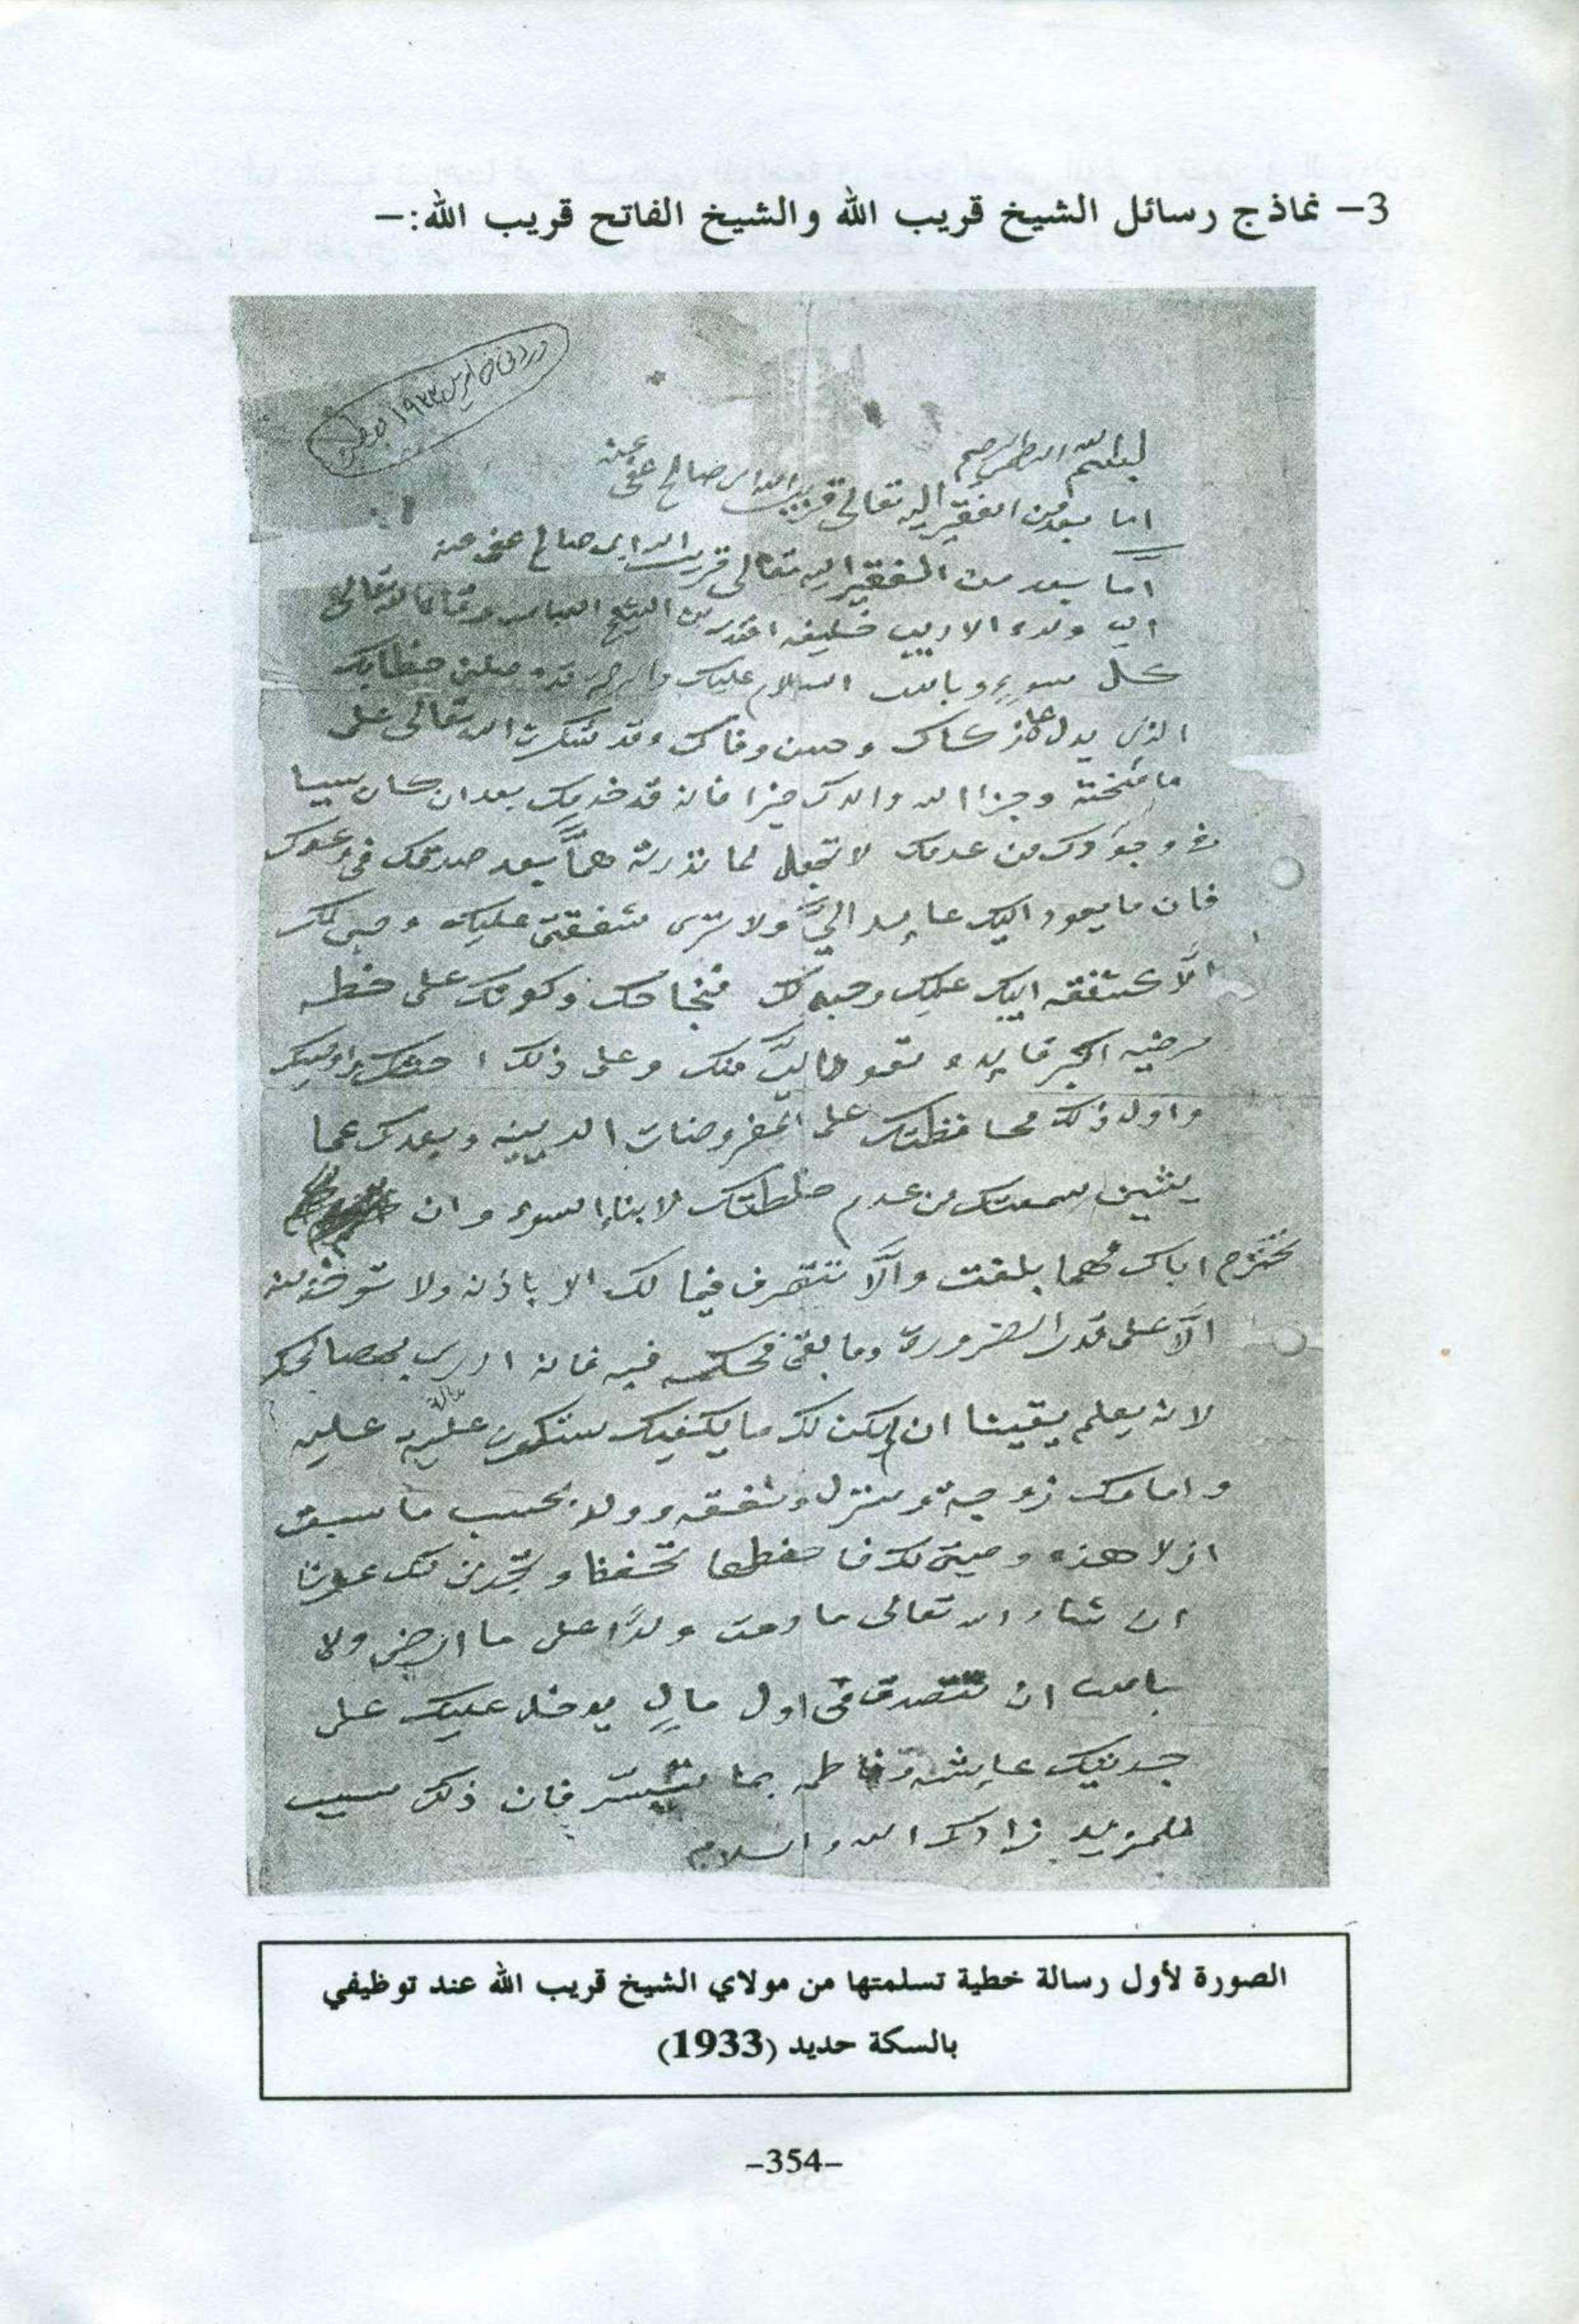 3- نماذج رسائل الشيخ قريب الله والشيخ الفاتح قريب الله:-
بسم الله الرحمن الرحيم
اما بعد فمن الفقير اليه تعالى قريب الله ابى صالح عفى عنه
أما بعد من الفقير اليه تعالى قريب الله ابى صالح عفى عنه
الى ولده الاريب خليفه الشيخ العباس وقانا الله تعالى
كل سوء وبأس السلام عليك والرحمه قد وصلنى خطابك
الذى يدل على ذكاك وحسن وفاك وقد شكرت الله تعالى على
ما منحته وجزا الله والدك خيرا فانه قد خدمك بعد ان كان سببا
فى وجودك من عدمك لا تجعل لما نذرته همّاً بعد صدقك فى
فان ما يعود اليك عايد اليَّ ولا ترى شفقتى عليك وحبى لك
الّا كشفقه ابيك عليك وحبه لك فنجاحك وكونك على خطه
مرضيه اكبر فايده وعلى ذلك احثك واوصيك
واول ذلك محافظتك على المفروضات الدينيه وبعدك عما
يشين سمعتك من عدم خلطتك لابناء السوء وان
تحترم اباك مهما بلغت وألّا تتصرف فيما لك الا باذنه ولا
الّا على قدر الضرورة وما بقى فحكمه فيه فانه ادرى بمصالحك
لانه يعلم يقينا ان لم يكن لك ما يكفيك ستكون عالة عليه
وامامك زوجة ومنزل ونفقه وولد بحسب ما سبق
ازلا هذه وصيتى لك فاحفظها تحفظ وتجدنى لك عونا
ان شاء الله تعالى ما دمت ولدًا على ما ارضى ولا
بأس ان تتصدق فى اول مالٍ يدخل عليك على
جدتيك عايشه وفاطمه بما تيسّر فان ذلك سبب
للمزيد زادك الله والسلام
الصورة لأول رسالة خطية تسلمتها من مولاي الشيخ قريب الله عند توظيفي
بالسكة حديد (1933)
-354-